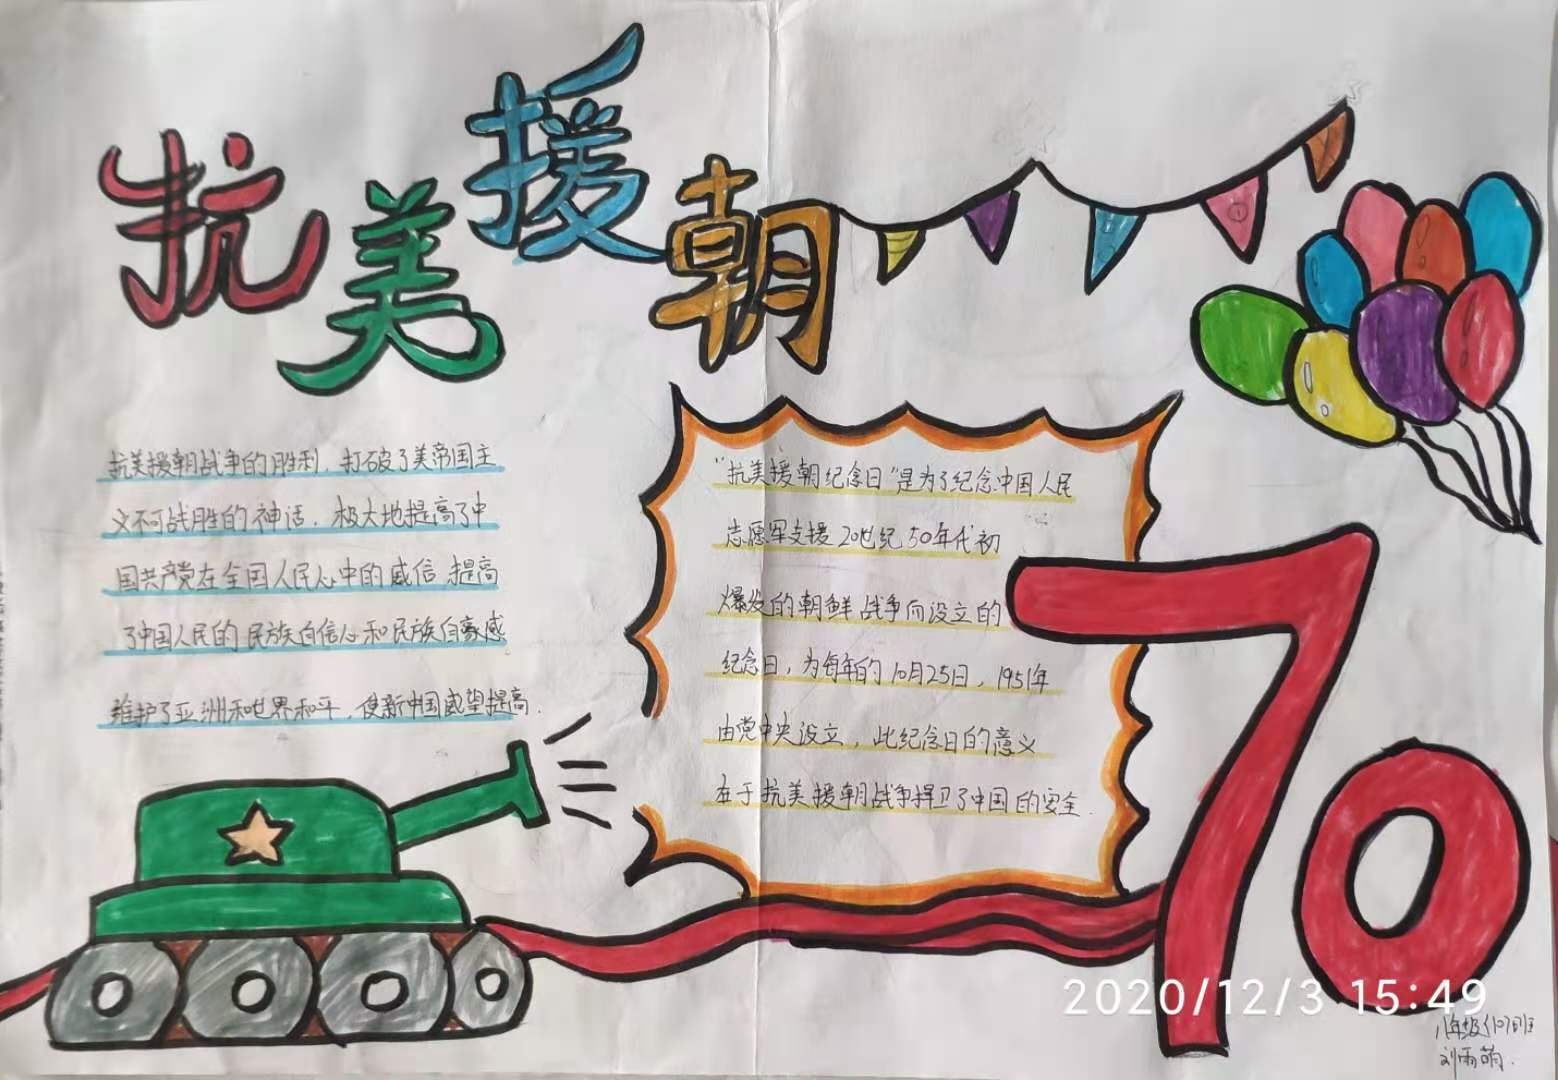 抗美援朝
抗美援朝战争的胜利，打破了美帝国主
义不可战胜的神话，极大地提高了中
国共产党在全国人民心中的威信，提高
了中国人民的民族自信心和民族自豪感
维护了亚洲和世界和平，使新中国威望提高.
“抗美援朝纪念日”是为了纪念中国人民
志愿军支援20世纪50年代初
爆发的朝鲜战争而设立的
纪念日，为每年的10月25日，1951年
由党中央设立，此纪念日的意义
在于抗美援朝战争捍卫了中国的安全.
70
2020/12/3 15:49
八年级（107）班
刘雨萌.